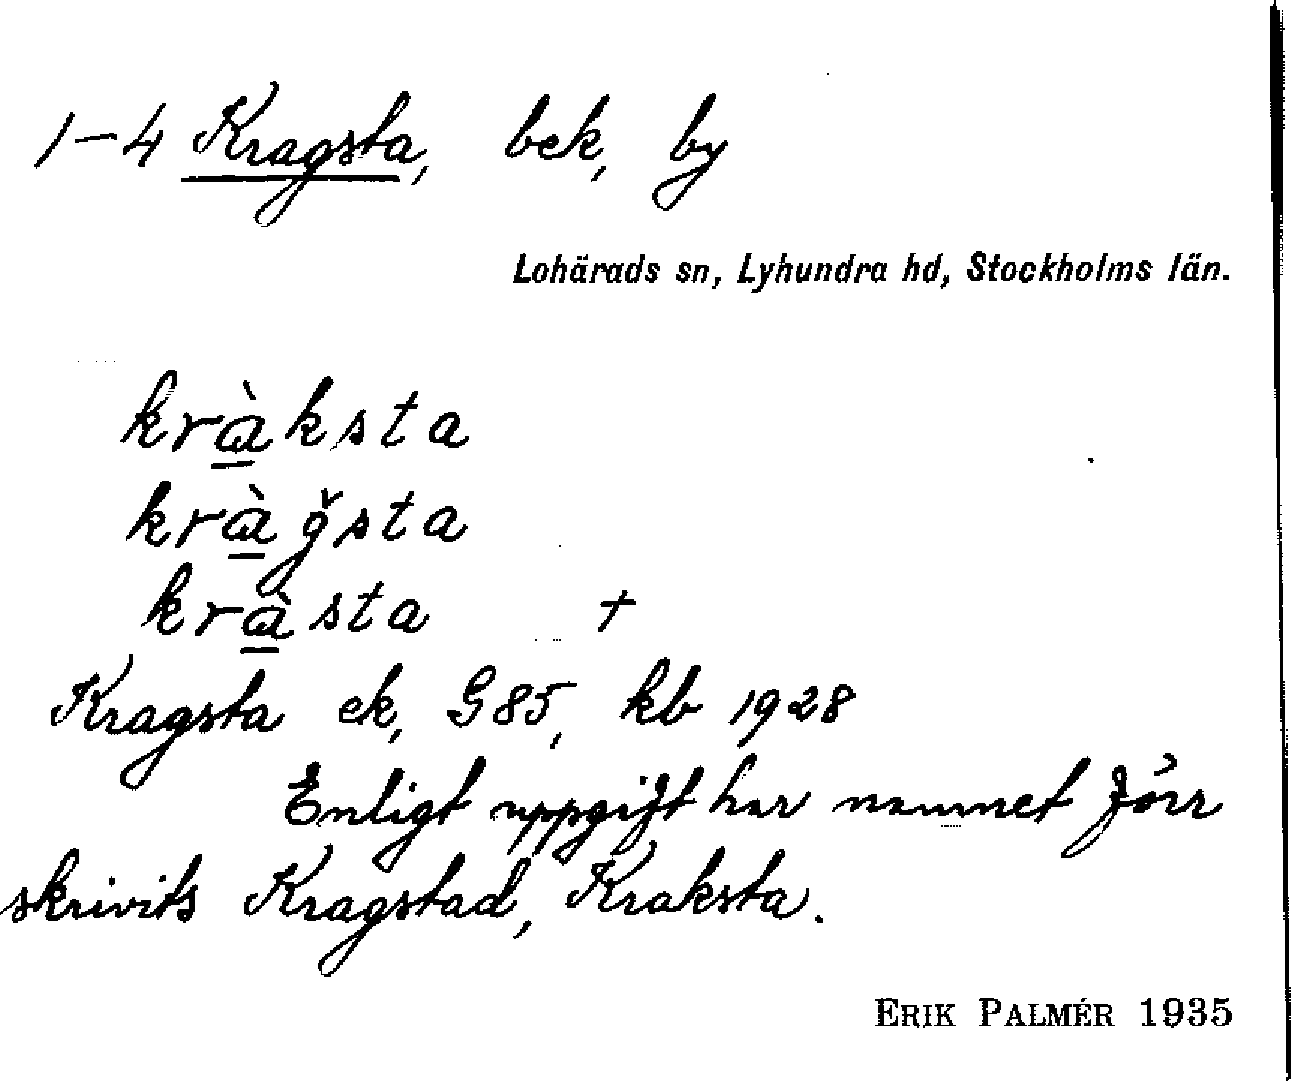 1–4 Kragsta, bek, by
Lohärads sn, Lyhundra hd, Stockholms län.
kràksta
kràǧsta
kràsta †
Kragsta ek, G85, kb 1928
Enligt uppgift har namnet förr
skrivits Kragstad, Kraksta.
ERIK PALMÉR 1935